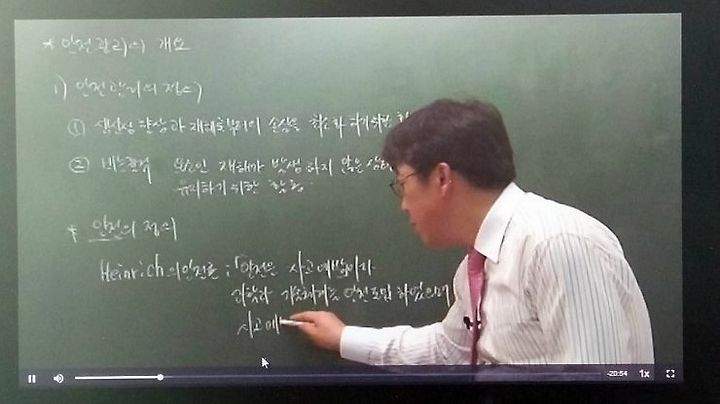 * 안전관리의 개요
1) 안전관리의 정의
① 생산성 향상과 재해로부터의 손실을 최소화 하기위한
② 비능률적 요소인 재해가 발생하지 않은 상태
유지하기 위한 활동.
* 안전의 정의
Heinrich의 안전론 ; 「안전은 사고예방이자
과학과 기술체계를 안전도입 하였으며
사고예
-20:54 1x